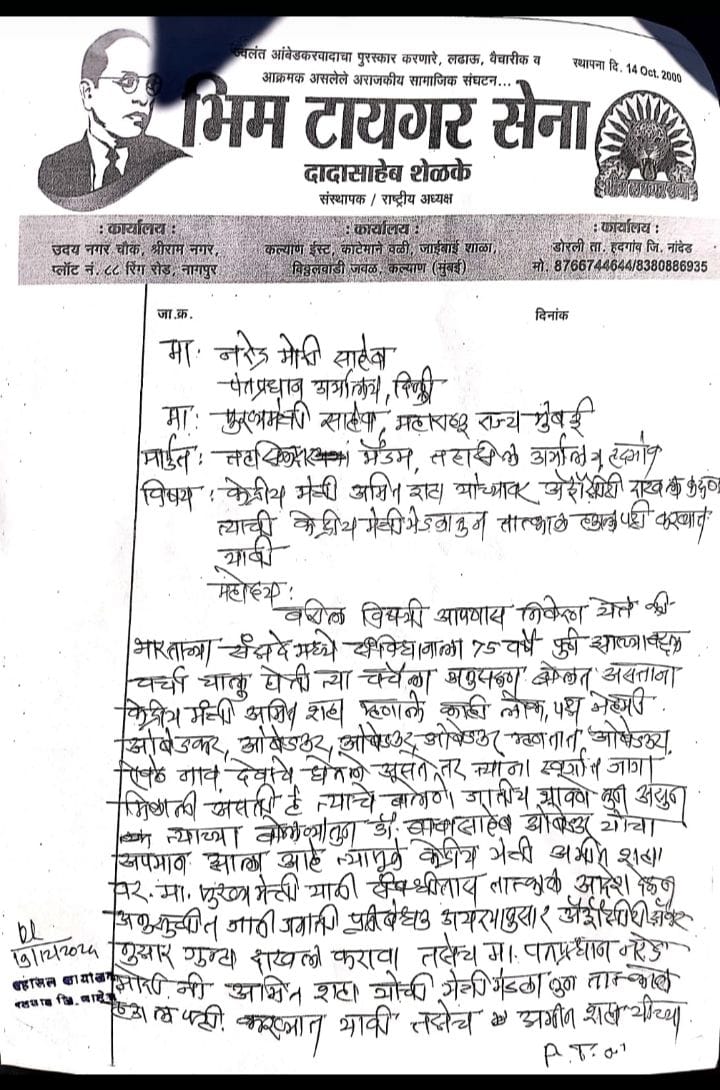 ज्वलंत आंबेडकरवादाचा पुरस्कार करणारे, लढाऊ, वैचारीक व
आक्रमक असलेले अराजकीय सामाजिक संघटन...
स्थापना दि. 14 Oct. 2000
भिम टायगर सेना
दादासाहेब शेळके
संस्थापक / राष्ट्रीय अध्यक्ष
: कार्यालय :
उदय नगर चौक, श्रीराम नगर,
प्लॉट नं. ८८ रिंग रोड, नागपुर
: कार्यालय :
कल्याण ईस्ट, काटेमाने वळी, जाईबाई शाळा,
विठ्ठलवाडी जवळ, कल्याण (मुंबई)
: कार्यालय :
डोरली ता. हदगांव जि. नांदेड
मो. 8766744644/8380886935
जा.क्र.
दिनांक
मा. नरेंद्र मोदी साहेब
पंतप्रधान कार्यालय, दिल्ली
मा. मुख्यमंत्री साहेब, महाराष्ट्र राज्य मुंबई
मार्फत : मॅडम, तहसील कार्यालय हदगांव
विषय : केंद्रीय मंत्री अमित शहा यांच्यावर अॅट्रॉसिटी दाखल करून
त्याची केंद्रीय मंत्रीमंडळातुन तात्काळ हकालपट्टी करण्यात
यावी
महोदय :
वरील विषयी आपणास निवेदन येते की
भारताच्या संसदेमध्ये संविधानाला 75 वर्षे पुर्ण झाल्याबद्दल
चर्चा चालु होती त्या चर्चेला अनुसरून बोलत असताना
केंद्रीय मंत्री अमित शहा म्हणाले काही लोक,
आंबेडकर, आंबेडकर, आंबेडकर, आंबेडकर म्हणतात आंबेडकर
एवढे नाव देवाचे घेतले असते तर त्यांना स्वर्गात जागा
मिळाली असती हे त्याचे बोलणे जातीय असुन
त्याच्या बोलण्यातुन डॉ. बाबासाहेब आंबेडकर यांचा
अपमान झाला आहे त्यामुळे केंद्रीय मंत्री अमित शहा
वर. मा. मुख्यमंत्री यांनी तात्काळ आदेश देऊन
अनुसुचीत जाती जमाती प्रतिबंधक कायद्यानुसार अॅट्रॉसिटी
नुसार गुन्हा दाखल करावा तसेच मा. पंतप्रधान नरेंद्र
मोदी नी अमित शहा यांची मंत्रीमंडळातुन तात्काळ
हकालपट्टी करण्यात यावी तसेच अमीत शहा यांच्या
P.T.O
19/12/2024
तहसिल कार्यालय